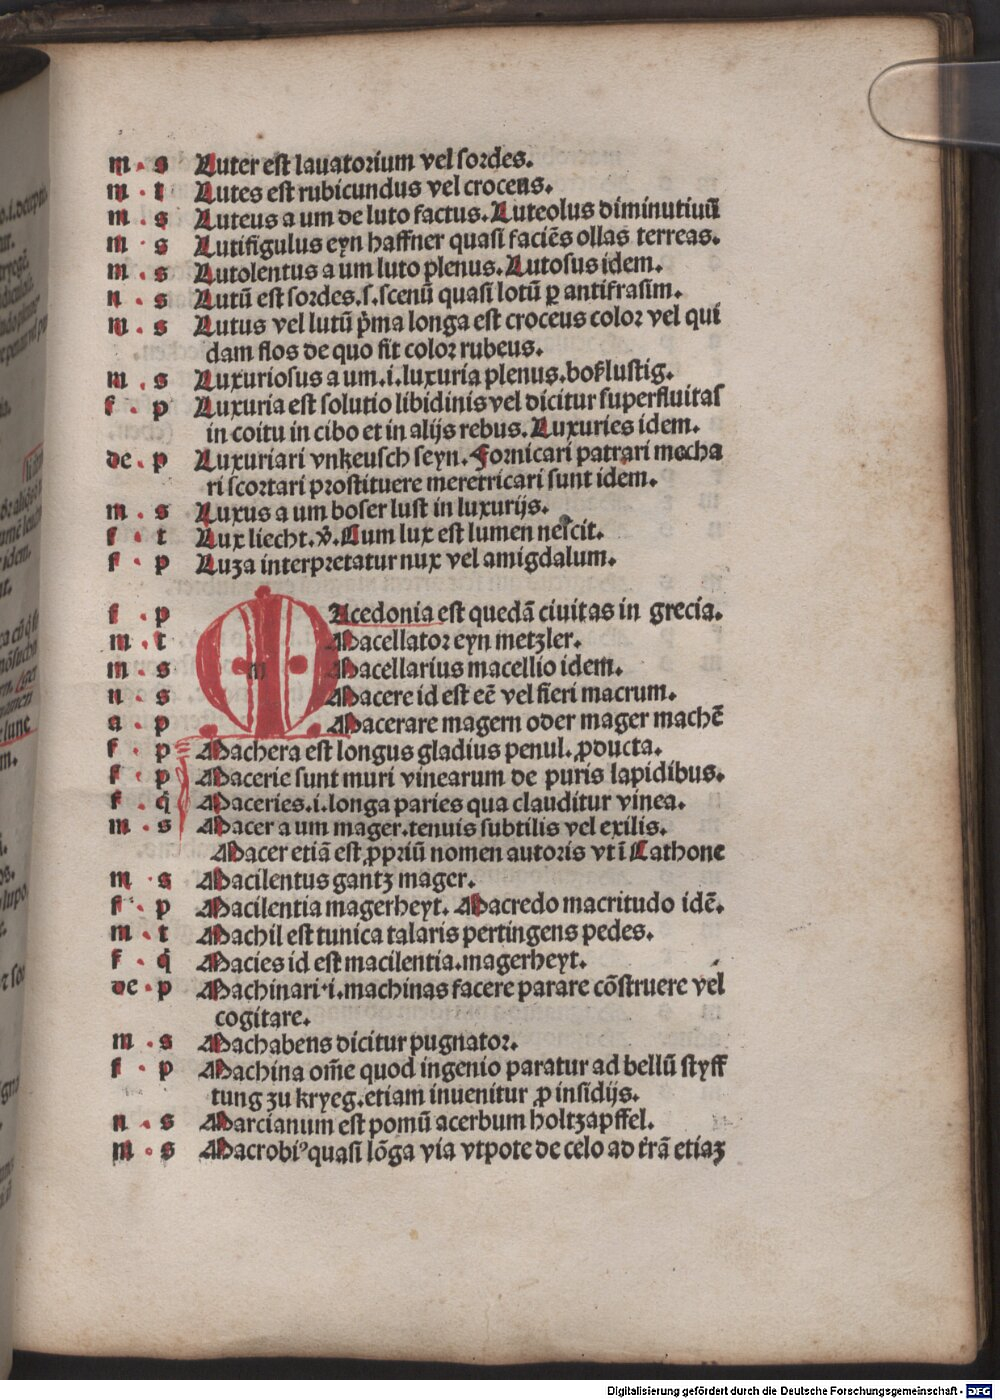 m . s Luter est lauatorium vel sordes.
m . t Lutes est rubicundus vel croceus.
m . s Luteus a um de luto factus. Luteolus diminutiuū
m . s Lutifigulus eyn haffner quasi faciēs ollas terreas.
m . s Lutolentus a um luto plenus. Lutosus idem.
n . s Lutū est sordes. s. scenū quasi lotū ꝑ antifrasim.
m . s Lutus vel lutū p̄ma longa est croceus color vel qui
dam flos de quo fit color rubeus.
m . s Luxuriosus a um .i. luxuria plenus. boßlustig.
f . p Luxuria est solutio libidinis vel dicitur superfluitas
in coitu in cibo et in alijs rebus. Luxuries idem.
de . p Luxuriari vnkeusch seyn. Fornicari patrari mecha
ri scortari prostituere meretricari sunt idem.
m . s Luxus a um boser lust in luxurijs.
f . t Lux liecht. v̄. Cum lux est lumen nescit.
f . p Luza interpretatur nux vel amigdalum.
f . p MAcedonia est quedā ciuitas in grecia.
m . t Macellator eyn metzler.
m . s Macellarius macellio idem.
n . s Macere id est eē vel fieri macrum.
a . p Macerare magern oder mager machē
f . p Machera est longus gladius penul. ꝓducta.
f . p Macerie sunt muri vinearum de puris lapidibus.
f . q̄ Maceries .i. longa paries qua clauditur vinea.
m . s Macer a um mager. tenuis subtilis vel exilis.
Macer etiā est ꝓpriū nomen autoris vt ī Cathone
m . s Macilentus gantz mager.
f . p Macilentia magerheyt. Macredo macritudo idē.
m . t Machil est tunica talaris pertingens pedes.
f . q̄ Macies id est macilentia. magerheyt.
de . p Machinari .i. machinas facere parare cōstruere vel
cogitare.
m . s Machabens dicitur pugnator.
f . p Machina om̄e quod ingenio paratur ad bellū styff
tung zu kryeg. etiam inuenitur ꝓ insidijs.
n . s Marcianum est pomū acerbum holtzapffel.
m . s Macrobiꝰ quasi lōga via vtpote de celo ad t̄rā etiaꝫ
Digitalisierung gefördert durch die Deutsche Forschungsgemeinschaft - DFG